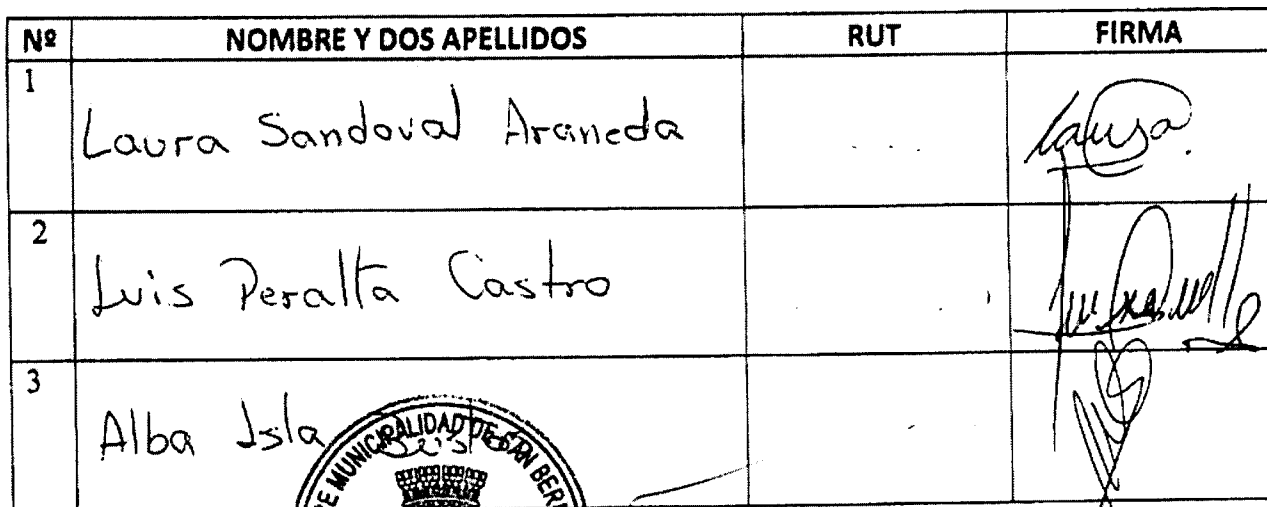 Nº NOMBRE Y DOS APELLIDOS RUT FIRMA
1 Laura Sandoval Araneda Laura
2 Luis Peralta Castro
3 Alba Isla
MUNICIPALIDAD DE SAN BER